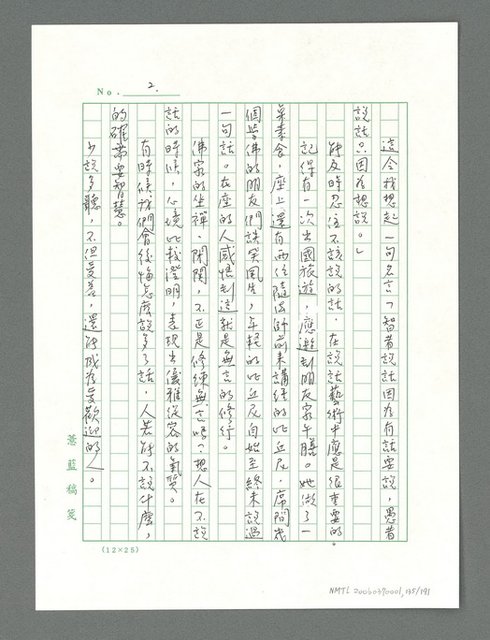 No. 2.
這令我想起一句名言「智者說話因為有話要說，愚者
說話只因為想說。」
能及時忍住不該說的話，在說話藝術中應是很重要的。
記得有一次出國旅遊，應邀到朋友家午膳。她做了一
桌素食，座上還有兩位隨法師前來講經的比丘尼，席間幾
個學佛的朋友們談笑風生，年輕的比丘尼自始至終未說過
一句話。在座的人感悟到這就是無言的修行。
佛家的坐禪、閉關，不正是修練無言嗎？想人在不說
話的時候，心境比較澄明，表現出優雅從容的氣質。
有時候我們會後悔怎麼說多了話，人若能不說什麼，
的確需要智慧。
少說多聽，不但受益，還能成為受歡迎的人。
薏藍稿箋
(12×25)
NMTL 20060390001, 135/191